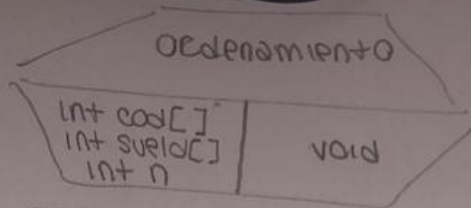 ordenamiento
int cod[]
int sueld[]
int n
void